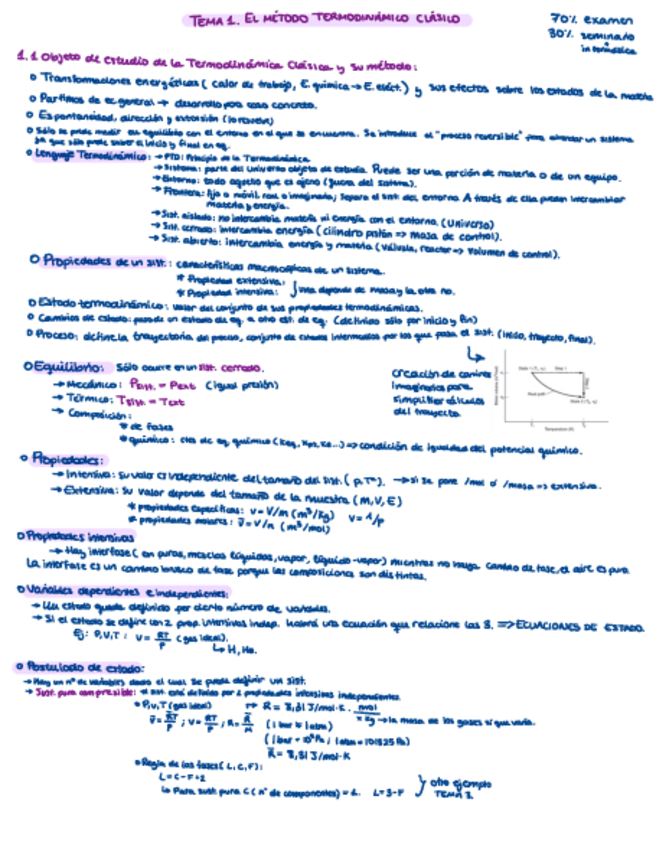 TEMA 1. EL MÉTODO TERMODINÁMICO CLÁSICO
70% examen
30% seminario
1.1 Objeto de estudio de la Termodinámica Clásica y su método:
o Transformaciones energéticas (calor de trabajo, E. química → E. eléct.) y sus efectos sobre los estados de la materia
o Partimos de ec general → desarrollo para caso concreto.
o Espontaneidad, dirección y extensión
o Sólo se puede medir en equilibrio con el entorno en el que se encuentra. Se introduce el "proceso reversible" para abordar un sistema
ya que sólo puede saber el inicio y final en eq.
o Lenguaje Termodinámico: → PTD: Principio de la Termodinámica
→ Sistema: parte del universo objeto de estudio. Puede ser una porción de materia o de un equipo.
→ Entorno: todo aquello que es ajeno (fuera del sistema).
→ Frontera: fija o móvil, real o imaginaria; separa el sist. del entorno. A través de ella pueden intercambiar
materia y energía.
→ Sist. aislado: no intercambia materia ni energía con el entorno. (Universo)
→ Sist. cerrado: intercambia energía (cilindro pistón => masa de control).
→ Sist. abierto: intercambia energía y materia (válvula, reactor => volumen de control).
o Propiedades de un sist.: características macroscópicas de un sistema.
* Propiedad extensiva:
* Propiedad intensiva: } una depende de masa y la otra no.
o Estado termodinámico: valor del conjunto de sus propiedades termodinámicas.
o Cambios de estado: pasa de un estado de eq. a otro est. de eq. (definidos sólo por inicio y fin)
o Proceso: define la trayectoria del proceso, conjunto de estados intermedios por los que pasa el sist. (inicio, trayecto, final).
o Equilibrio: Sólo ocurre en un sist. cerrado.
→ Mecánico: Psist. = Pext (igual presión)
→ Térmico: Tsist. = Text
→ Composición:
* de fases
* químico: ctes de eq. químico (Keq, Kps, Ka...) => condición de igualdad del potencial químico.
creación de caminos
imaginarios para
simplificar cálculos
del trayecto.
Temperature (K)
o Propiedades:
→ Intensiva: su valor es independiente del tamaño del sist. (p, Tª). → si se pone /mol o /masa => extensiva.
→ Extensiva: su valor depende del tamaño de la muestra (m, V, E)
* propiedades específicas: v = V/m (m³/kg) v = 1/ρ
* propiedades molares: v̄ = V/n (m³/mol)
o Propiedades intensivas
→ Hay interfase (en puros, mezclas líquidos, vapor, líquido-vapor) mientras no haya cambio de fase, el aire es puro
La interfase es un cambio brusco de fase porque las composiciones son distintas.
o Variables dependientes e independientes:
→ Un estado queda definido por cierto número de variables.
→ Si el estado se define con 2 prop. intensivas indep. habrá una ecuación que relacione las 3. => ECUACIONES DE ESTADO.
Ej: P,V,T : V = RT/P (gas ideal).
o Postulado de estado:
→ Hay un nº de variables dado el cual se puede definir un sist.
→ Sust. pura compresible: el sist. está definido por 2 propiedades intensivas independientes.
• P,V,T (gas ideal) R = 8,31 J/mol·K · mol/x kg → la masa de los gases sí que varía.
v̄ = R̄T/P ; v = RT/P ; R = R̄/M (1 bar ≈ 1 atm)
(1 bar = 10⁵ Pa ; 1 atm = 101325 Pa)
R̄ = 8,31 J/mol·K
• Regla de las fases (L, C, F):
L = C - F + 2
↳ Para sust. pura C (nº de componentes) = 1. L = 3 - F } otro ejemplo